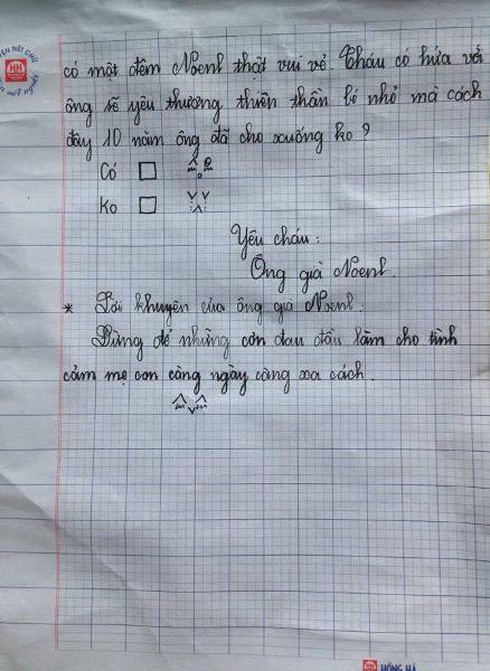 UYỆN NÉT CHỮ
HH
N NẾT NGƯỜI
có một đêm Noenl thật vui vẻ. Cháu có hứa với
ông sẽ yêu thương thiên thần bé nhỏ mà cách
đây 10 năm ông đã cho xuống ko?
Có □
Ko □
Yêu cháu:
Ông già Noenl.
* Lời khuyên của ông già Noenl:
Đừng để những cơn đau đầu làm cho tình
cảm mẹ con càng ngày càng xa cách.
HỒNG HÀ